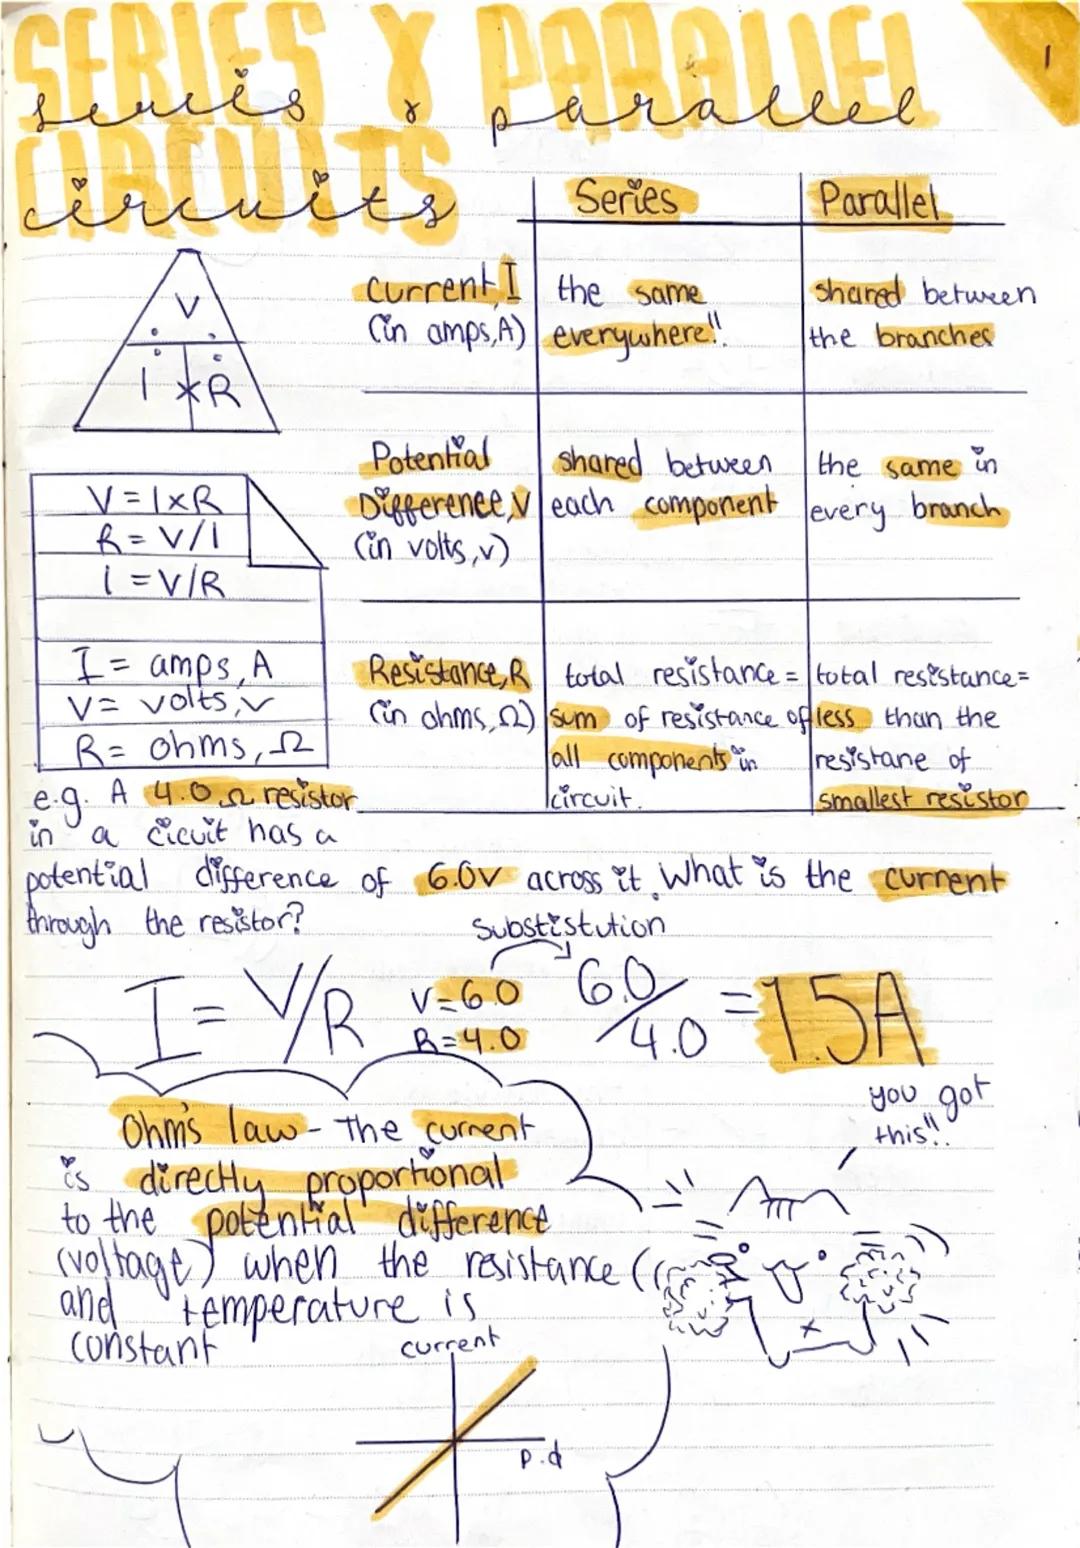 SERIES & PARALLEL
series & parallel
CIRCUITS
circuits
1
V
I × R
V = I×R
R = V/I
I = V/R
I = amps, A
V = volts, v
R = ohms, Ω
Series
Parallel
current, I
(in amps, A)
the same
everywhere!!
shared between
the branches
Potential
Difference, V
(in volts, v)
shared between
each component
the same in
every branch
Resistance, R
(in ohms, Ω)
total resistance =
sum of resistance of
all components in
circuit.
total resistance =
less than the
resistane of
smallest resistor
e.g. A 4.0 Ω resistor
in a cicuit has a
potential difference of 6.0v across it. What is the current
through the resistor?
substistution
I = V/R
V=6.0
R=4.0
6.0/4.0 = 1.5A
you got
this!!
Ohm's law - The current
is directly proportional
to the potential difference
(voltage) when the resistance
and temperature is
constant
current
p.d